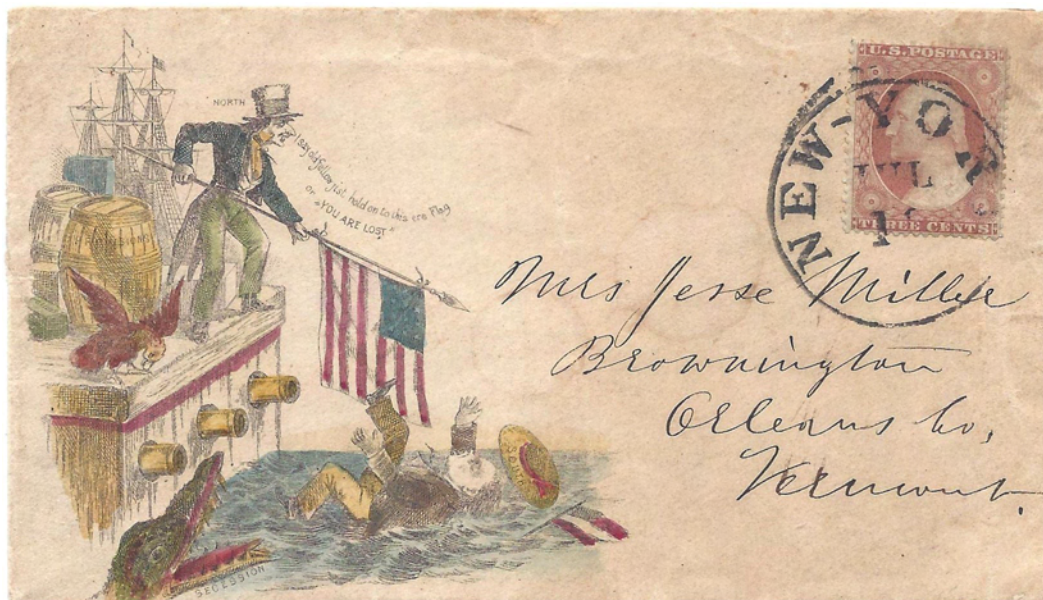 NORTH
I say old fellow jist hold on to this ere Flag
or
"YOU ARE LOST"
PROVISIONS
SOUTH
SECESSION
U.S. POSTAGE
THREE CENTS
NEW-YOR
JUL
Mrs Jesse Miller
Brownington
Orleans Co,
Vermont.